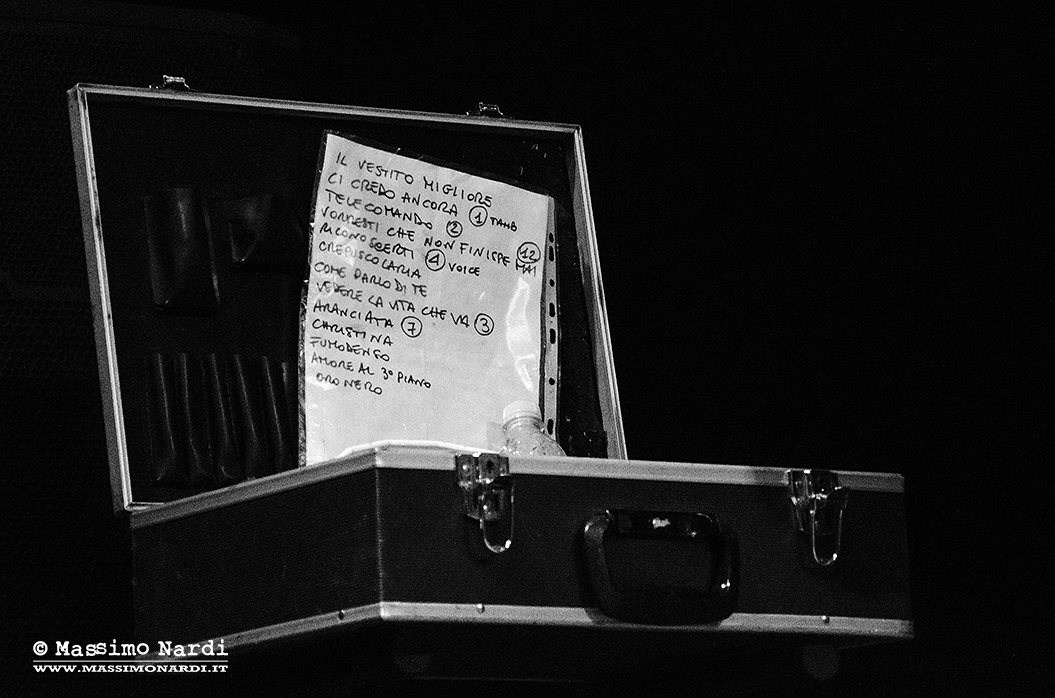 IL VESTITO MIGLIORE
CI CREDO ANCORA 1 TAMB
TELECOMANDO 2
VORRESTI CHE NON FINISSE MAI 12
RICONOSCERTI 4 VOICE
CREPUSCOLARIA
COME PARLO DI TE
VEDERE LA VITA CHE VA 3
ARANCIATA 7
CHRISTINA
FUMODENSO
AMORE AL 3º PIANO
ORO NERO
© Massimo Nardi
WWW.MASSIMONARDI.IT